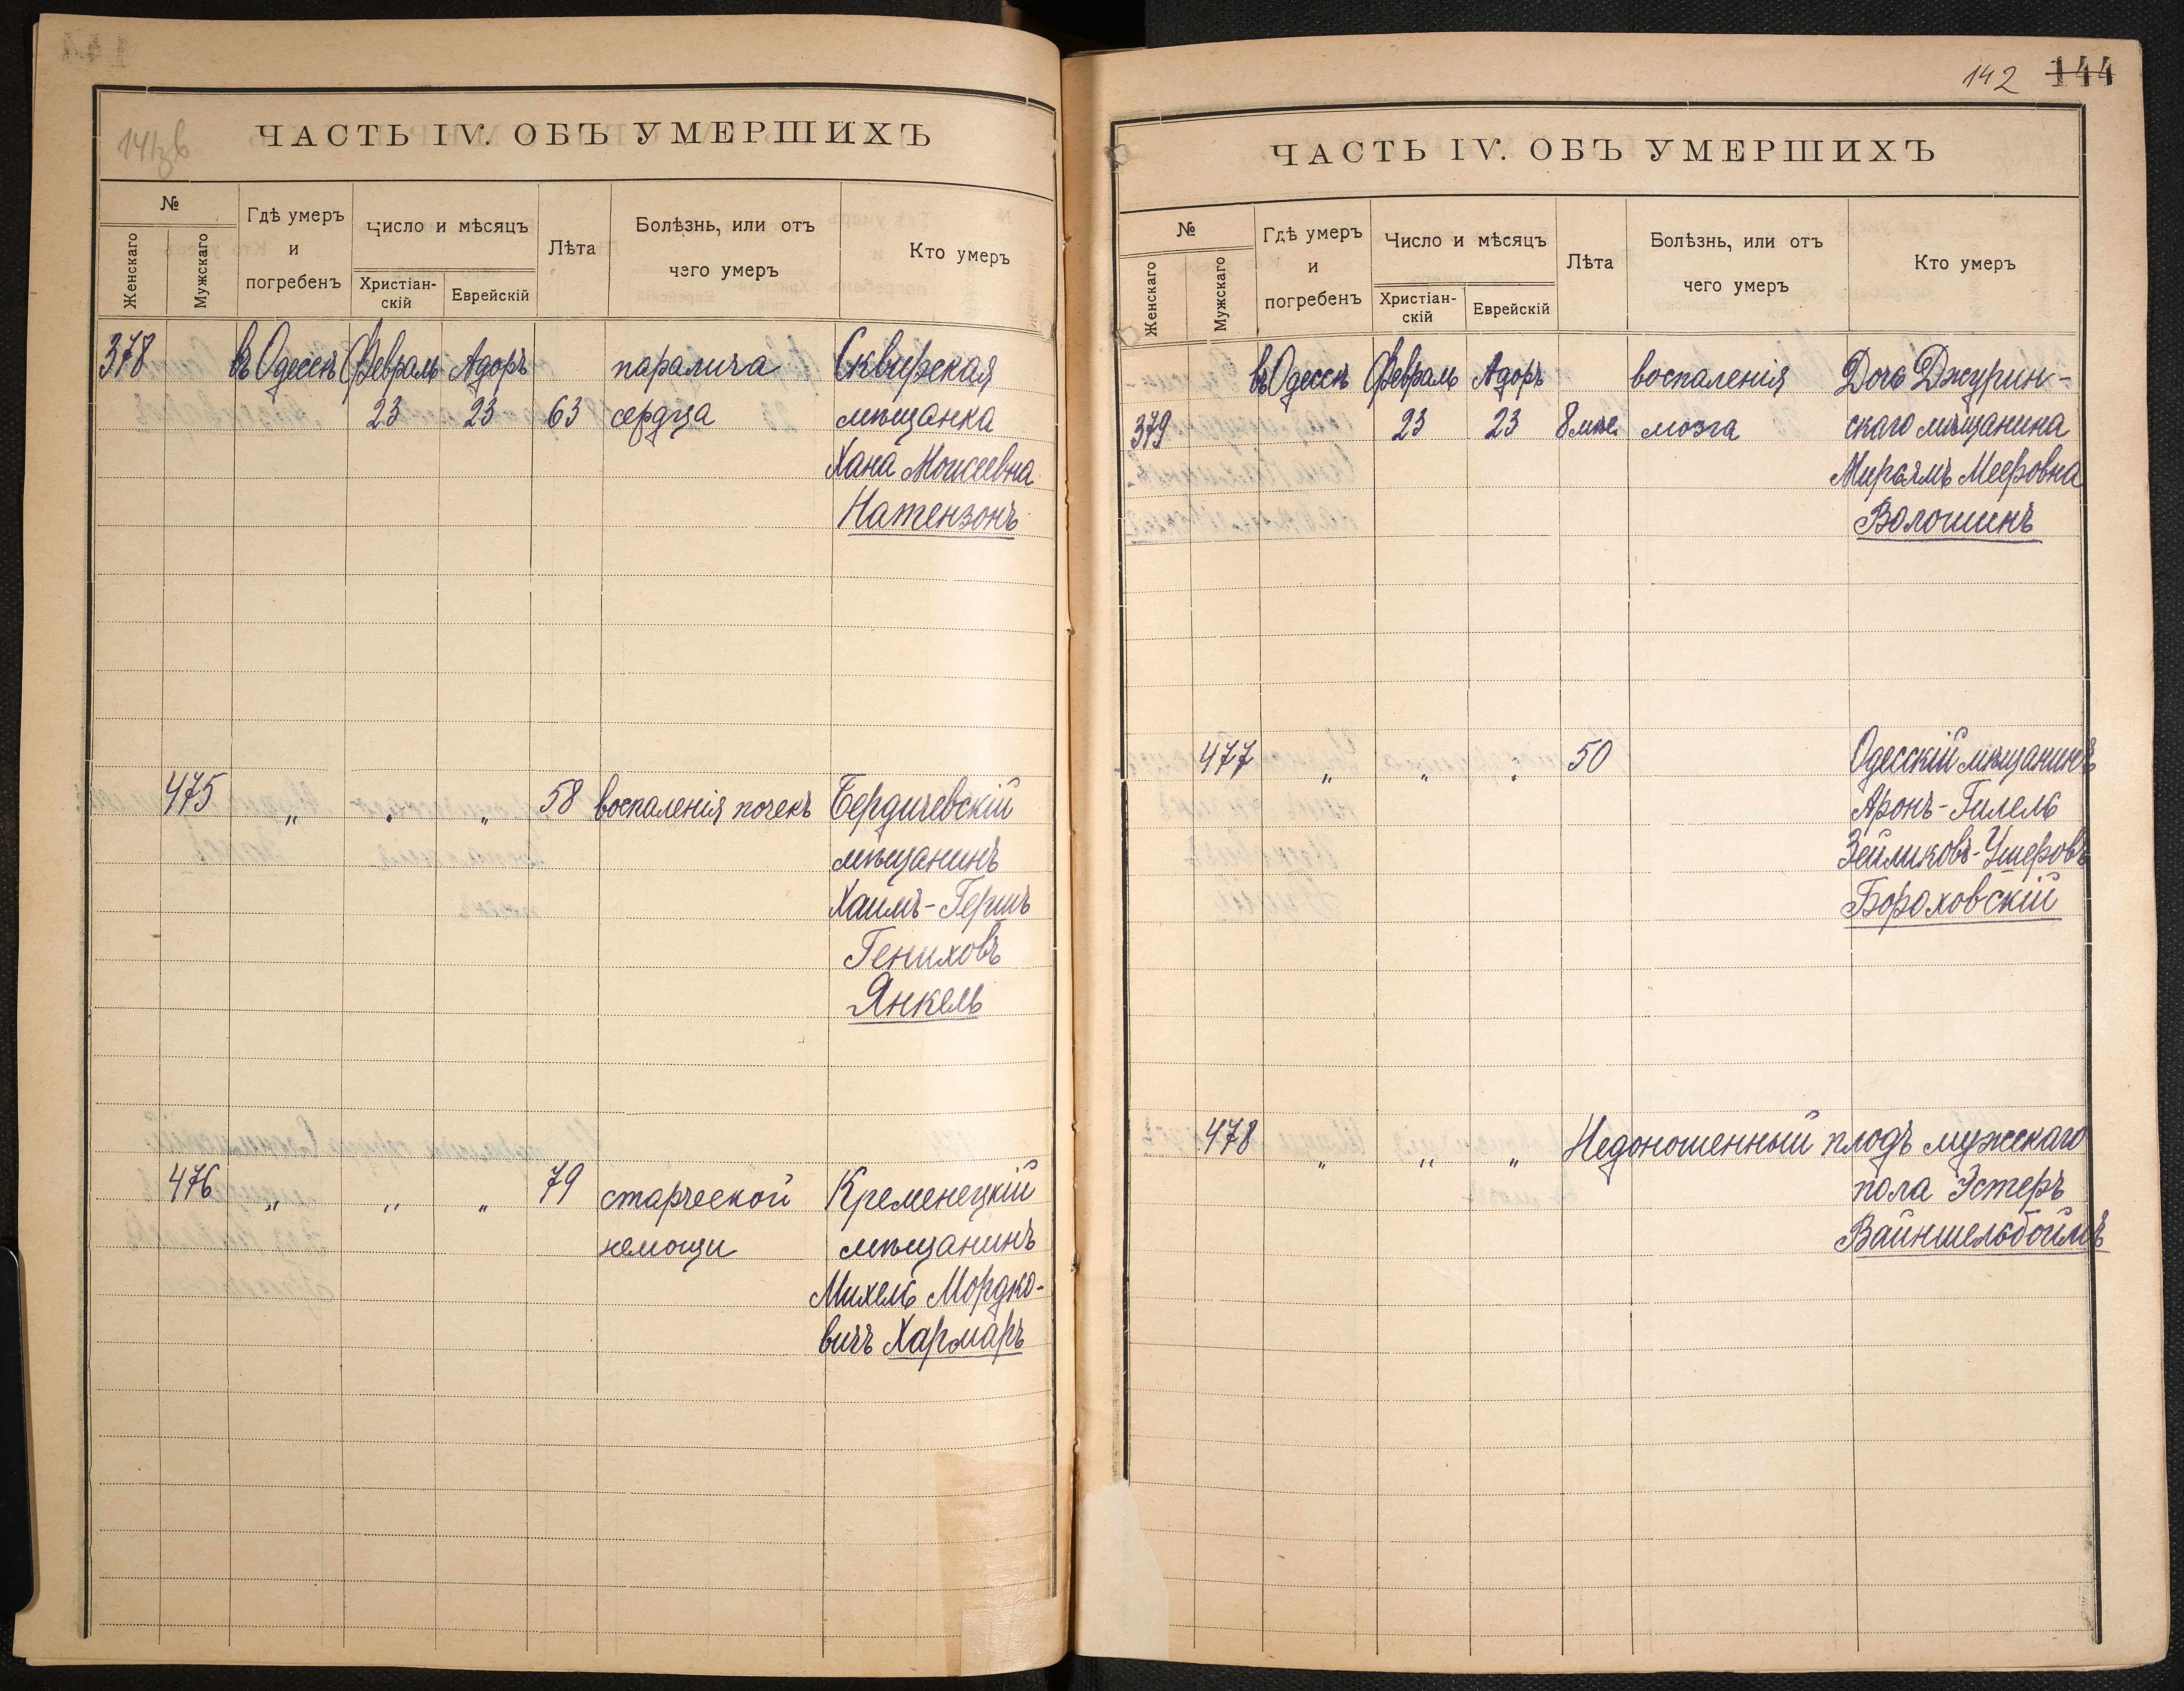 ЧАСТЬ IV. ОБЪ УМЕРШИХЪ
№
Женскаго
Мужскаго
Гдѣ умеръ
и
погребенъ
Число и мѣсяцъ
Христіан-
скій
Еврейскій
Лѣта
Болѣзнь, или отъ
чего умеръ
Кто умеръ
378 въ Одессѣ Февраль Адоръ паралича Сквирская
23 23 63 сердца мѣщанка
Хана Моисеевна
Натензонъ
475 „ „ „ 58 воспаленія почекъ Бердичевскій
мѣщанинъ
Хаимъ-Гершъ
Гениховъ
Янкель
476 „ „ „ 79 старческой Кременецкій
немощи мѣщанинъ
Михель Мордко-
вичъ Хармаръ
142 144
ЧАСТЬ IV. ОБЪ УМЕРШИХЪ
№
Женскаго
Мужскаго
Гдѣ умеръ
и
погребенъ
Число и мѣсяцъ
Христіан-
скій
Еврейскій
Лѣта
Болѣзнь, или отъ
чего умеръ
Кто умеръ
въ Одессѣ Февраль Адоръ воспаленія Дочь Джурин-
379 23 23 8 мѣс. мозга скаго мѣщанина
Мирьямъ Мееровна
Волошинъ
477 „ „ „ 50 Одесскій мѣщанинъ
Аронъ-Гилель
Зейликовъ-Ушеровъ
Бороховскій
478 „ „ „ Недоношенный плодъ мужскаго
пола Эстеръ
Вайншельбоймъ